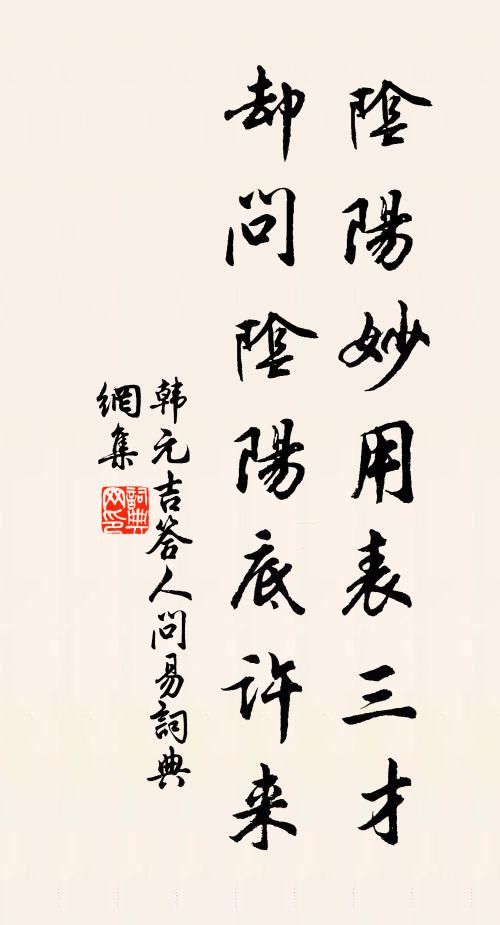 陰陽妙用表三才
却問陰陽底許来
韩元吉答人問易詞典
網集
詞典
网印